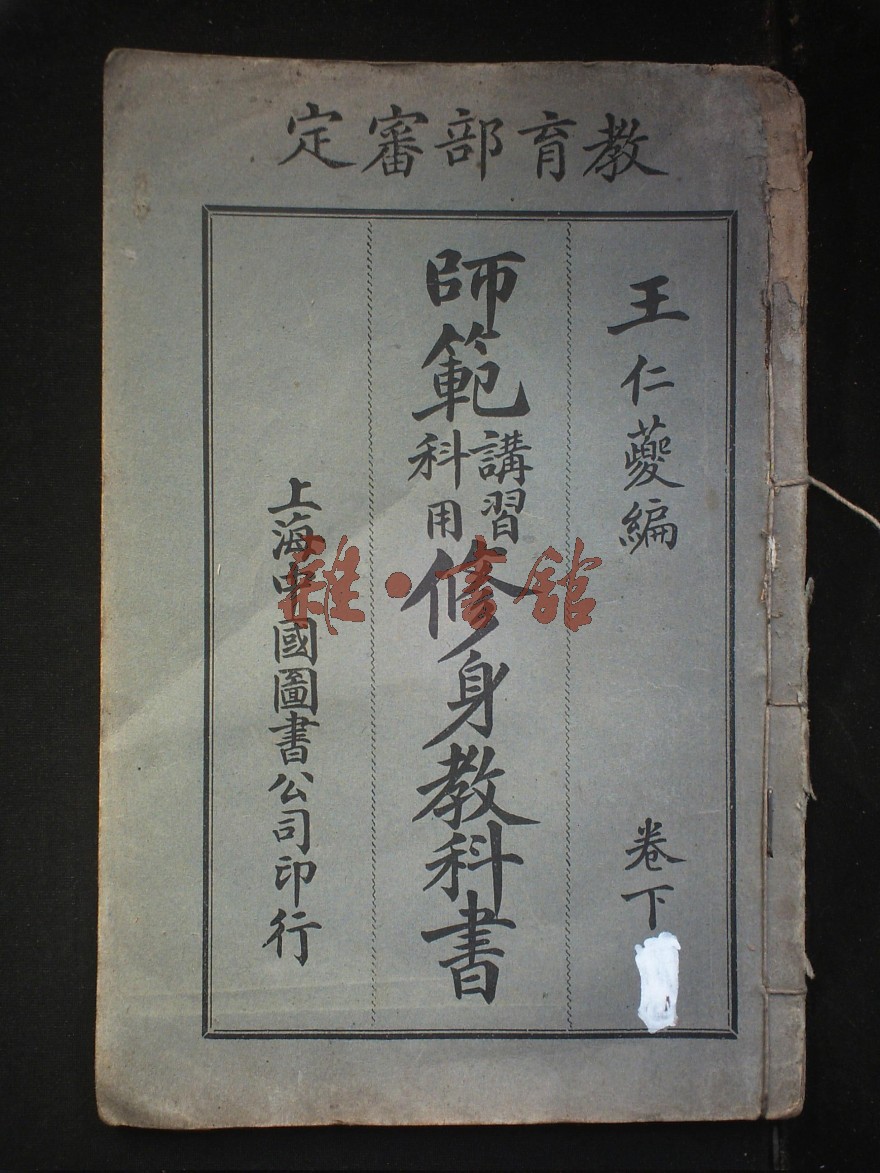 教育部審定
王仁夔編
卷下
師範講習科用修身教科書
上海中國圖書公司印行
雜·書館